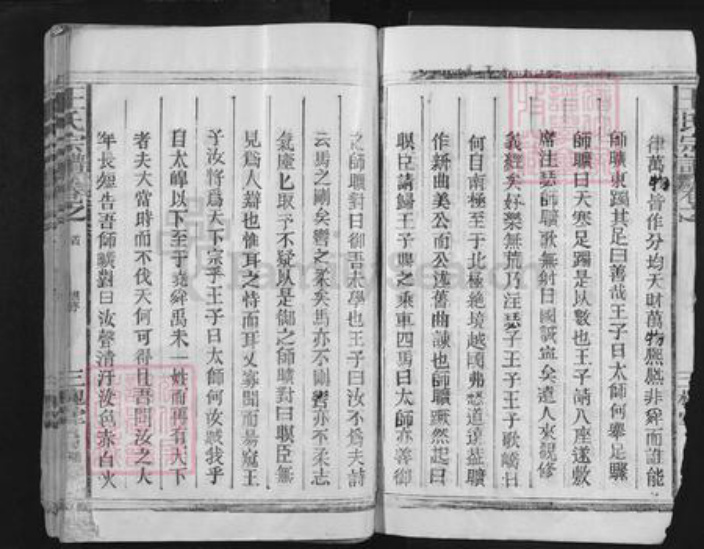 律萬物皆作分均天財萬物熙熙非舜而誰能
師曠東躅其足曰善哉王子曰太師何舉足驟
師曠曰天寒足躅是以數也王子請入座遂敷
席注瑟師曠歌無射曰國誠寧矣遠人來觀修
義經矣好樂無荒乃注瑟于王子王子歌嶠曰
何自南極至于北極絶境越國弗愁道遠師曠
作新曲美公而公述舊曲諫也師曠蹶然起曰
瞑臣請歸王子賜之乘車四馬曰太師亦善御
之師曠對曰御吾未學也王子曰汝不爲夫詩
云馬之剛矣轡之柔矣馬亦不剛轡亦不柔志
氣麃匕取予不疑以是御之師曠對曰瞑臣無
見爲人辯也惟耳之恃而耳又寡聞而易窮王
子汝將爲天下宗乎王子曰太師何汝戲我乎
自太皥以下至于堯舜禹未一姓而再有天下
者夫大當時而不伐天何可得且吾聞汝之人
年長短告吾師曠對曰汝聲清汗汝色赤白火
王氏宗譜卷之
三槐堂